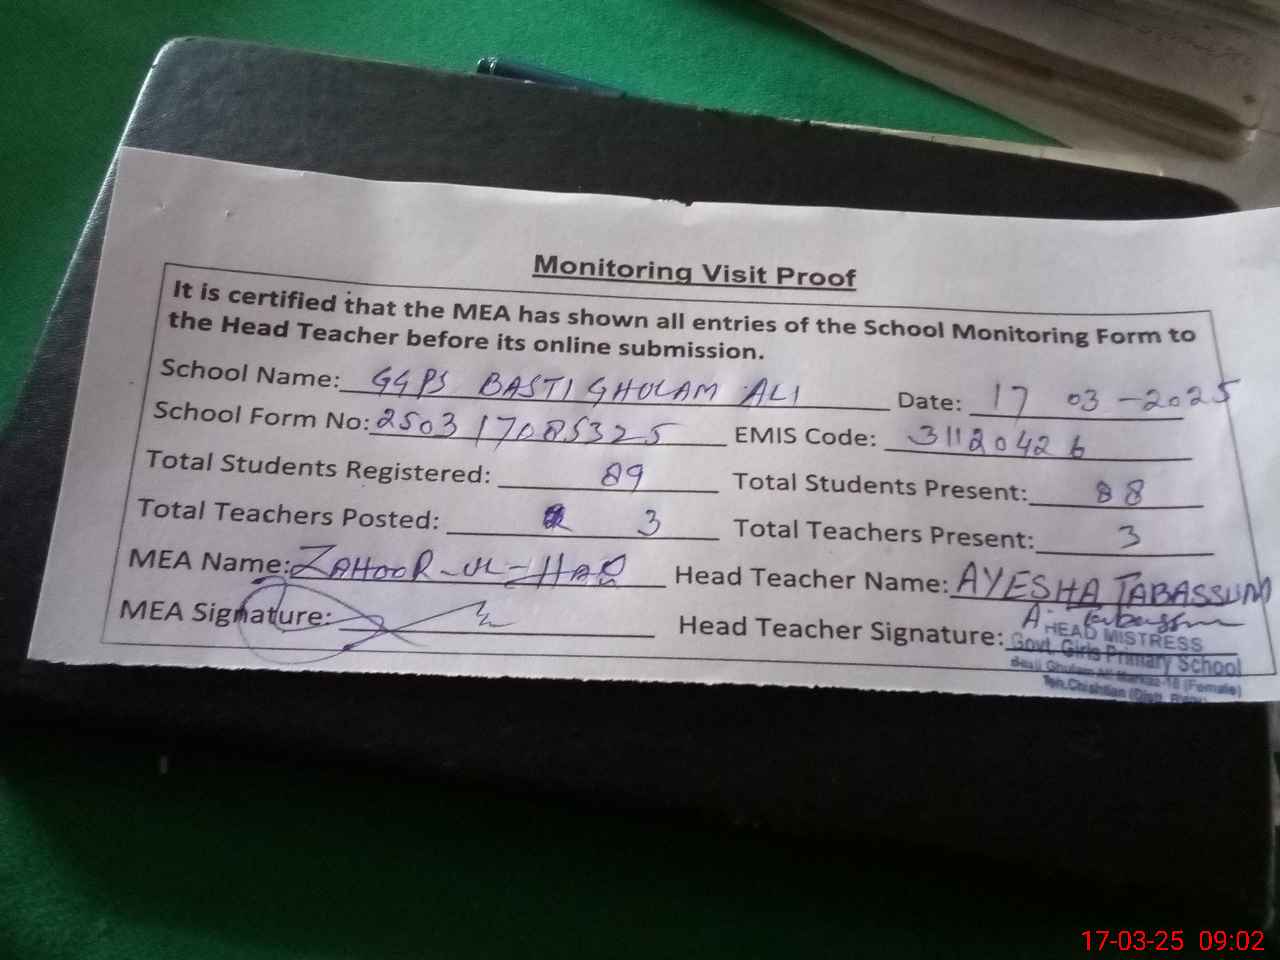 Monitoring Visit Proof
It is certified that the MEA has shown all entries of the School Monitoring Form to
the Head Teacher before its online submission.
School Name: GGPS BASTI GHULAM ALI Date: 17 03 -2025
School Form No: 250317085325 EMIS Code: 31120426
Total Students Registered: 89 Total Students Present: 88
Total Teachers Posted: 3 Total Teachers Present: 3
MEA Name: ZAHOOR-UL-HAQ Head Teacher Name: AYESHA TABASSUM
MEA Signature: Head Teacher Signature: A. Tabassum
HEAD MISTRESS
Govt. Girls Primary School
Basti Ghulam Ali Markaz-18 (Female)
Teh. Chishtian (Distt.
17-03-25 09:02